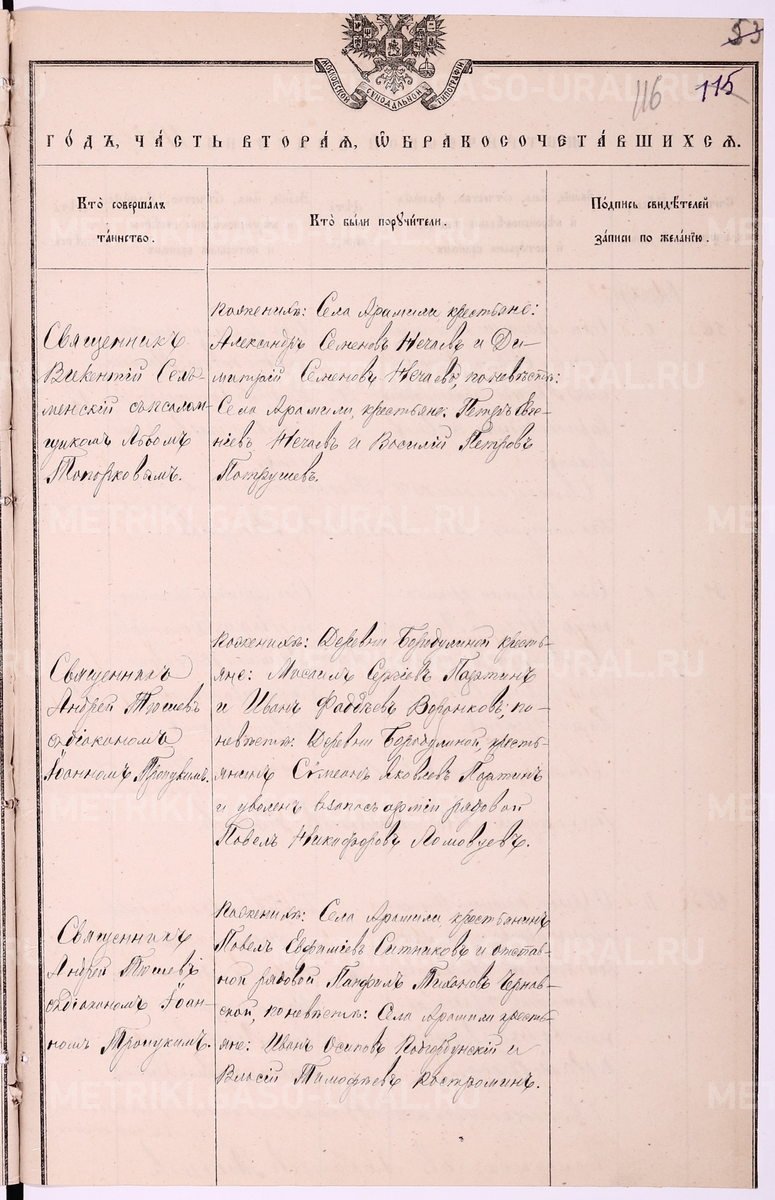 53
116 115
МОСКОВСКОЙ СѴНОДАЛЬНОЙ ТИПОГРАФІИ
ГО́ДЪ, ЧА́СТЬ ВТОРА́Я, Ѡ҆ БРАКОСОЧЕТА́ВШИХСѦ.
Кто̀ соверша́лъ
та́инство.
Кто̀ бы́ли порꙋчи́тели.
По́дпись свидѣ́телей
за́писи по жела́нїю.
Священникъ
Викентій Сель-
менскій съ псалом-
щикомъ Львомъ
Топорковымъ.
по женихѣ: Села Арамили крестьяне:
Александръ Семеновъ Нечаевъ и Ди-
митрій Семеновъ Нечаевъ, по невѣстѣ:
Села Арамили, крестьяне: Петръ Евге-
ніевъ Нечаевъ и Василій Петровъ
Потрушевъ.
Священникъ
Андрей Тюшевъ
съ діакономъ
Іоанномъ Троицкимъ.
по женихѣ: Деревни Бородулиной кресть-
яне: Максимъ Сергіевъ Партинъ
и Иванъ Фаддѣевъ Воронковъ; по
невѣстѣ: Деревни Бородулиной, кресть-
янинъ Сѵмеонъ Яковлевъ Партинъ
и уволен. въ запасъ арміи рядовой
Павелъ Никифоровъ Ломовцевъ.
Священникъ
Андрей Тюшевъ
съ діакономъ Іоан-
номъ Троицкимъ.
По женихѣ: Села Арамили, крестьянинъ
Павелъ Евфиміевъ Ситниковъ и отстав-
ной рядовой Панфилъ Тихоновъ Чернав-
ской, по невѣстѣ: Села Арамили кресть-
яне: Иванъ Осиповъ и
Власій Тимофѣевъ Костроминъ.
METRIKI.GASO-URAL.RU